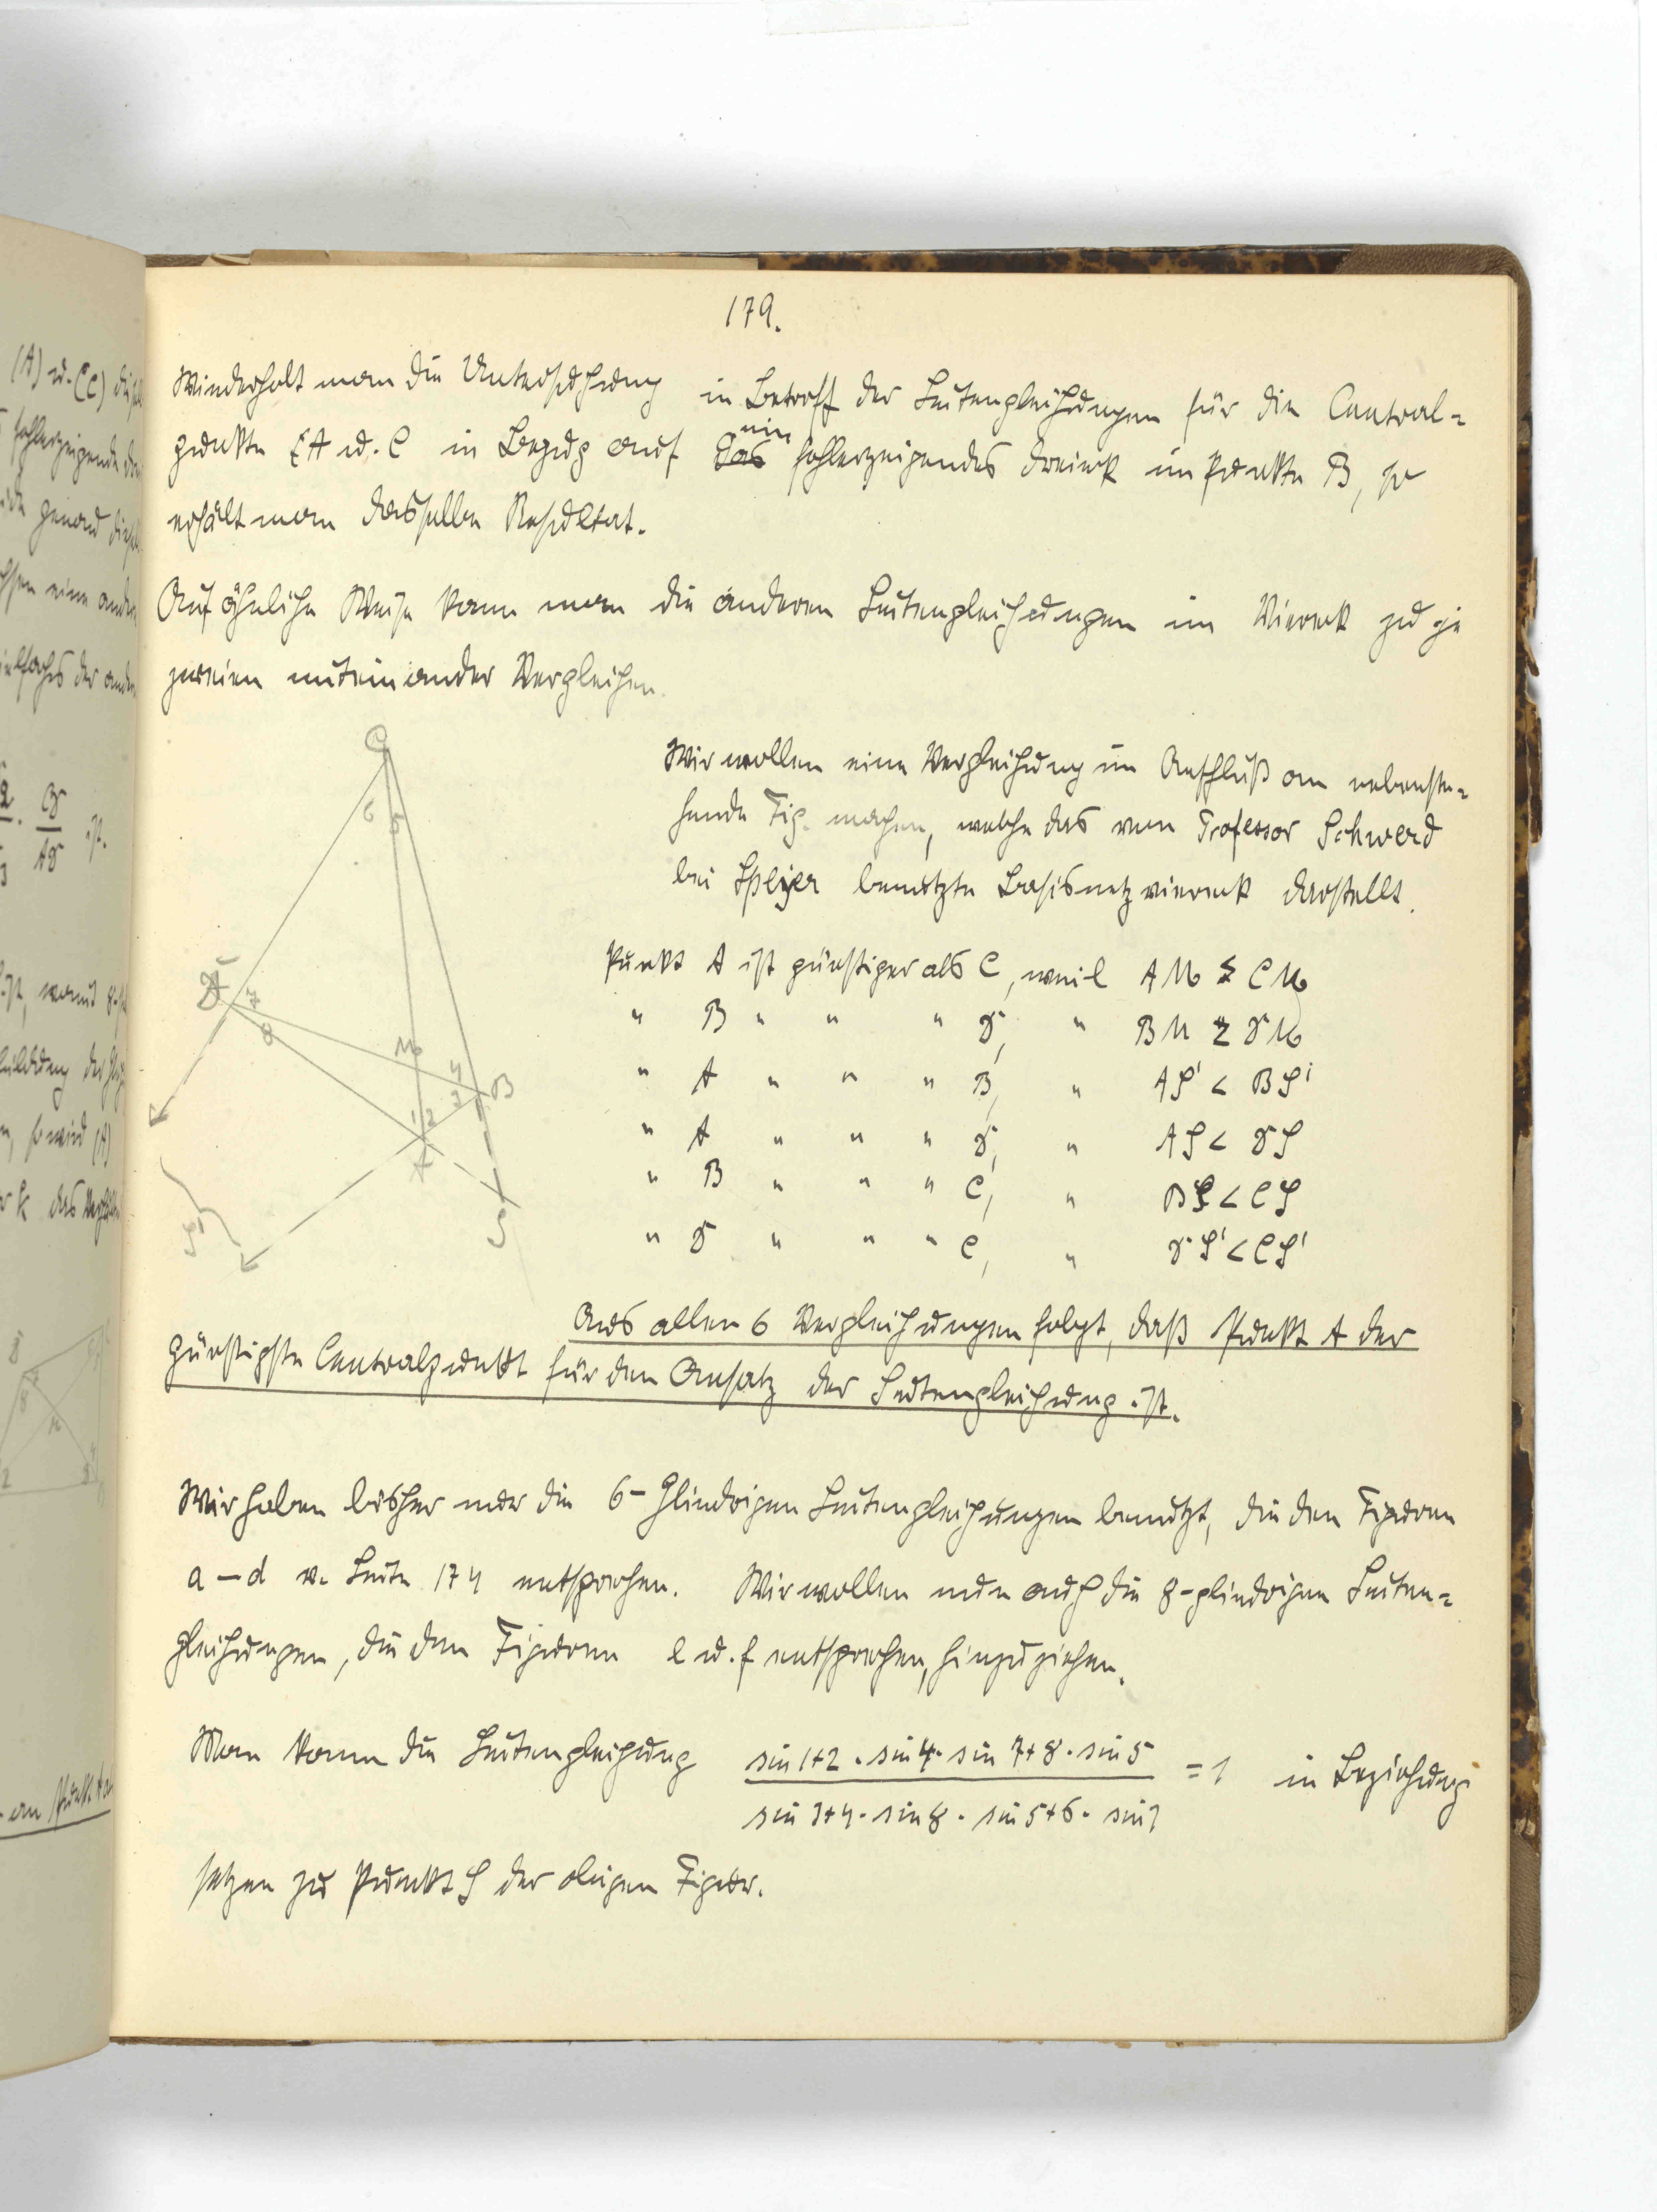 179.
Wiederholt man die Untersuchung in Betreff der Seitengleichungen für die Central=
punkte A u. C in Bezug auf ein fehlerzeigendes Dreieck im Punkte B, so
erhält man dasselbe Resultat.
Auf ähnliche Weise kann man die anderen Seitengleichungen im Viereck zu je
zweien miteinander Vergleichen.
Wir wollen eine Vergleichung im Anschluß an nebenste=
hende Fig. machen, welche das vom Professor Schwerd
bei Speyer benutzte Basisnetzviereck darstellt.
C
6 5
7
8
M
4
3
B
1 2
A
S
S'
Punkt A ist günstiger als C, weil AM < CM
" B " " " D, " BM < DM
" A " " " B, " AS' < BS'
" A " " " D, " AS < DS
" B " " " C, " BS < CS
" D " " " C, " DS' < CS'
Aus allen 6 Vergleichungen folgt, daß Punkt A der
günstigste Centralpunkt für den Ansatz der Seitengleichung ist.
Wir haben bisher nur die 6-Gliedrigen Seitengleichungen benutzt, die den Figuren
a – d v. Seite 174 entsprechen. Wir wollen nun auch die 8-gliedrigen Seiten=
gleichungen, die den Figuren e u. f entsprechen, hinzuziehen.
Man kann die Seitengleichung sin 1+2 · sin 4 · sin 7+8 · sin 5
= 1 in Beziehung
sin 3+4 · sin 8 · sin 5+6 · sin 1
setzen zu Punkt S der obigen Figur.